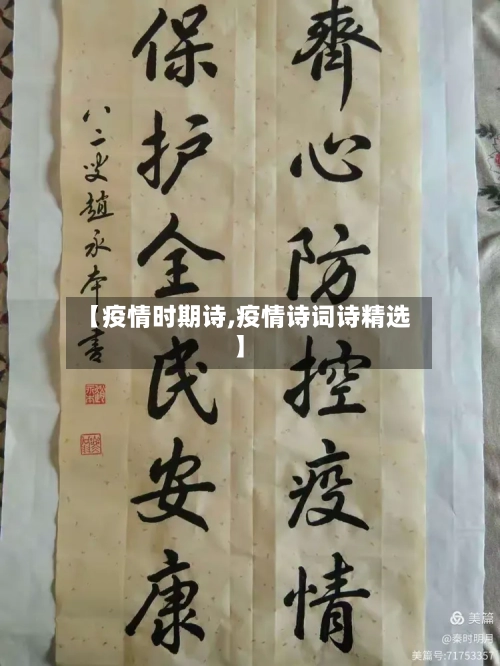 齊心防控疫情
保护全民安康
八二叟趙承本書
【疫情时期诗,疫情诗词诗精选
】
美篇
@秦时明月
美篇号:71753357